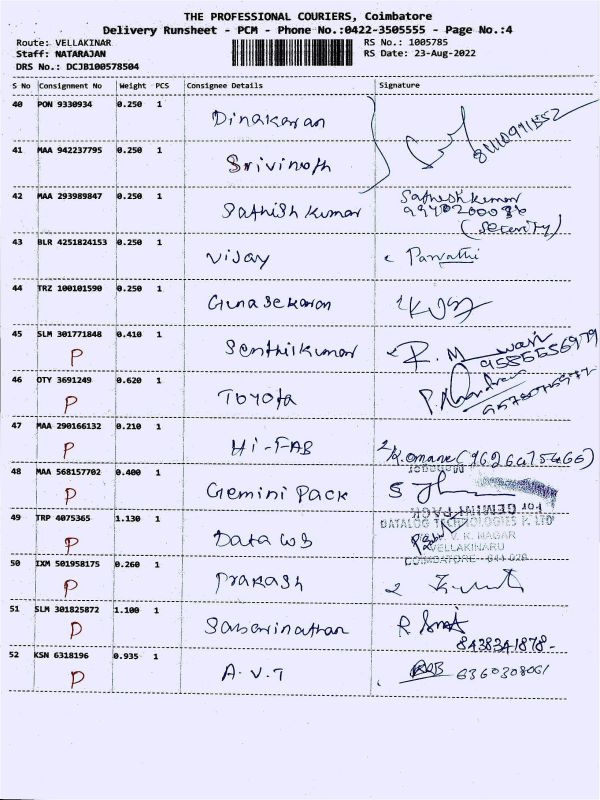 THE PROFESSIONAL COURIERS, Coimbatore
Delivery Runsheet - PCM - Phone No.:0422-3505555 - Page No.:4
Route: VELLAKINAR RS No.: 1005785
Staff: NATARAJAN RS Date: 23-Aug-2022
DRS No.: DCJB100578504
S No Consignment No Weight PCS Consignee Details Signature
40 PON 9330934 0.250 1 Dinakaran
41 MAA 942237795 0.250 1 Srivinoth
42 MAA 293989847 0.250 1 Sathish kumar Sathesh kumar
(Security)
43 BLR 4251824153 0.250 1 Vijay Parvathi
44 TRZ 100101590 0.250 1 Gunasekaran
45 SLM 301771848 0.410 1 Senthilkumar R. M
P 9585556979
46 OTY 3691249 0.620 1 Toyota
P
47 MAA 290166132 0.210 1 Hi-FAB
P
48 MAA 568157702 0.400 1 Gemini Pack
P For GEMINI PACK
49 TRP 4075365 1.130 1 Data WS DATALOG TECHNOLOGIES P. LTD
P V. K. NAGAR
VELLAKINARU
COIMBATORE - 641 029
50 IXM 501958175 0.260 1 Prakash
P
51 SLM 301825872 1.100 1 Sabarinathan R
P 8438341878-
52 KSN 6318196 0.935 1 A.V.T 6360308061
P